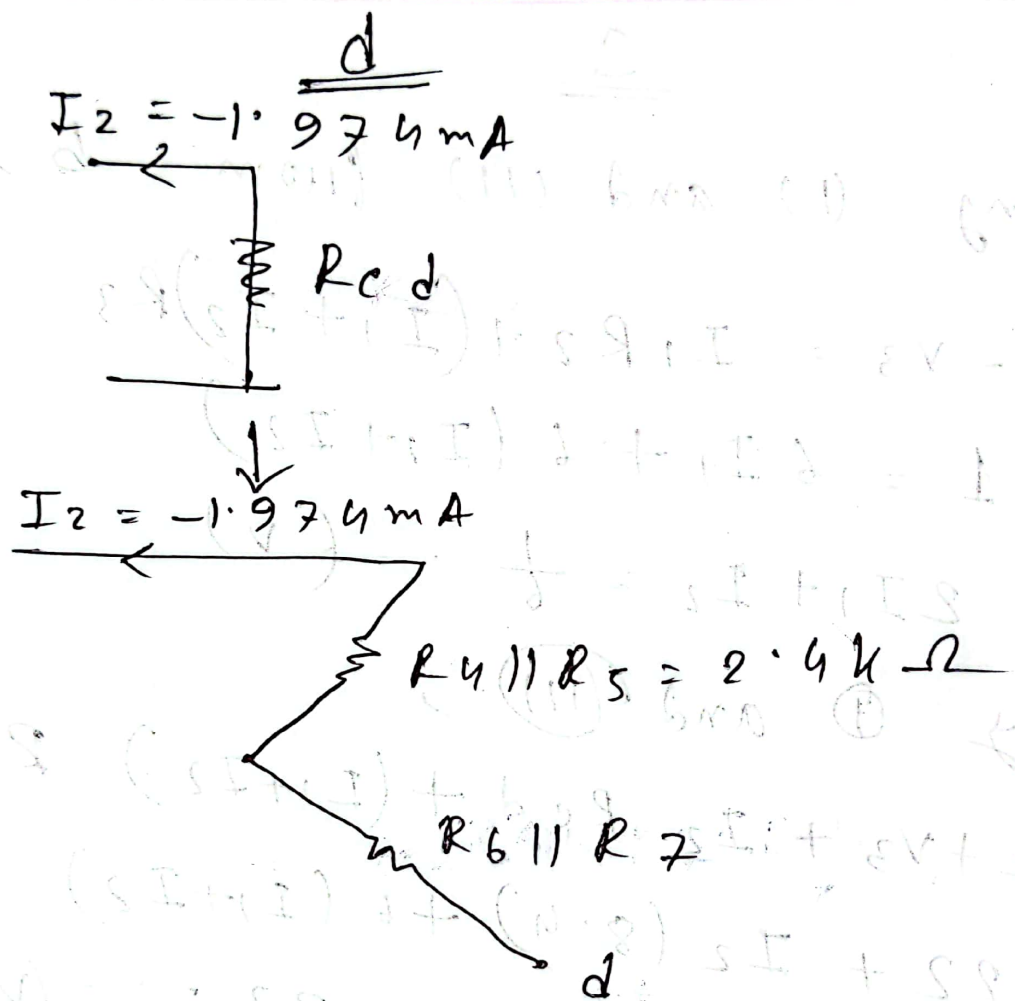 d
I2 = -1.974mA
Rcd
I2 = -1.974mA
R4 || R5 = 2.4kΩ
R6 || R7
d